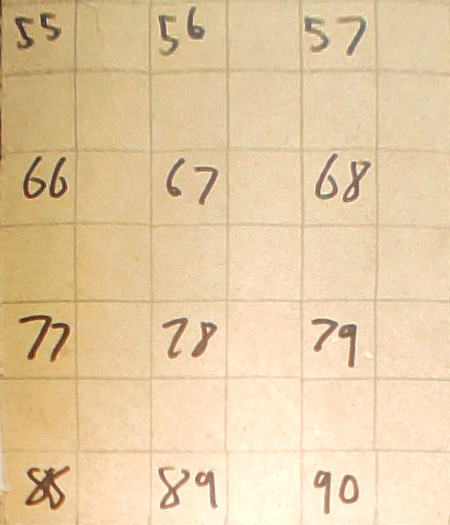 55 56 57
66 67 68
77 78 79
88 89 90